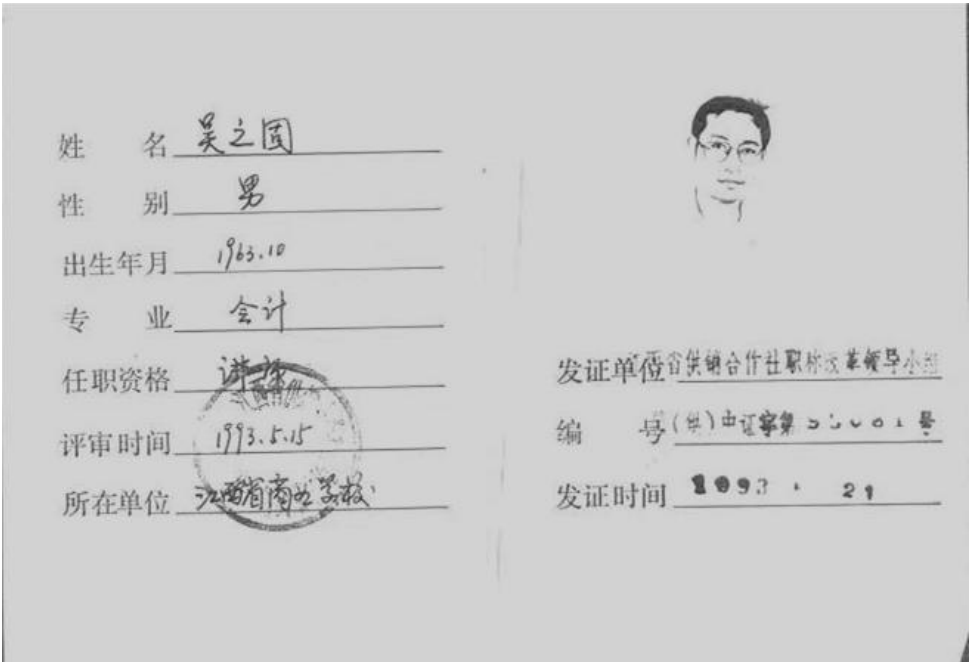 姓 名 吴之固
性 别 男
出生年月 1963.10
专 业 会计
任职资格 讲师
评审时间 1993.5.15
所在单位 江西省商业学校
发证单位 江西省供销合作社职称改革领导小组
编 号 (供)中证字第 号
发证时间 1993 . 21